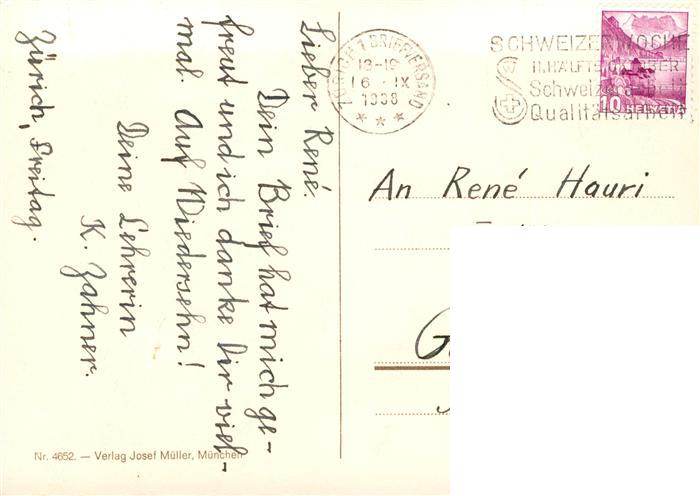 Lieber René.
Dein Brief hat mich ge-
freut und ich danke Dir viel-
mal. Auf Wiedersehn!
Deine Lehrerin
K. Zahner.
Zürich, Freitag.
Nr. 4652. — Verlag Josef Müller, München
ZÜRICH 1 BRIEFVERSAND
16. IX
1938
SCHWEIZERWOCHE
II. HÄLFTE OKTOBER
Qualitätsarbeit
10 HELVETIA
An René Hauri